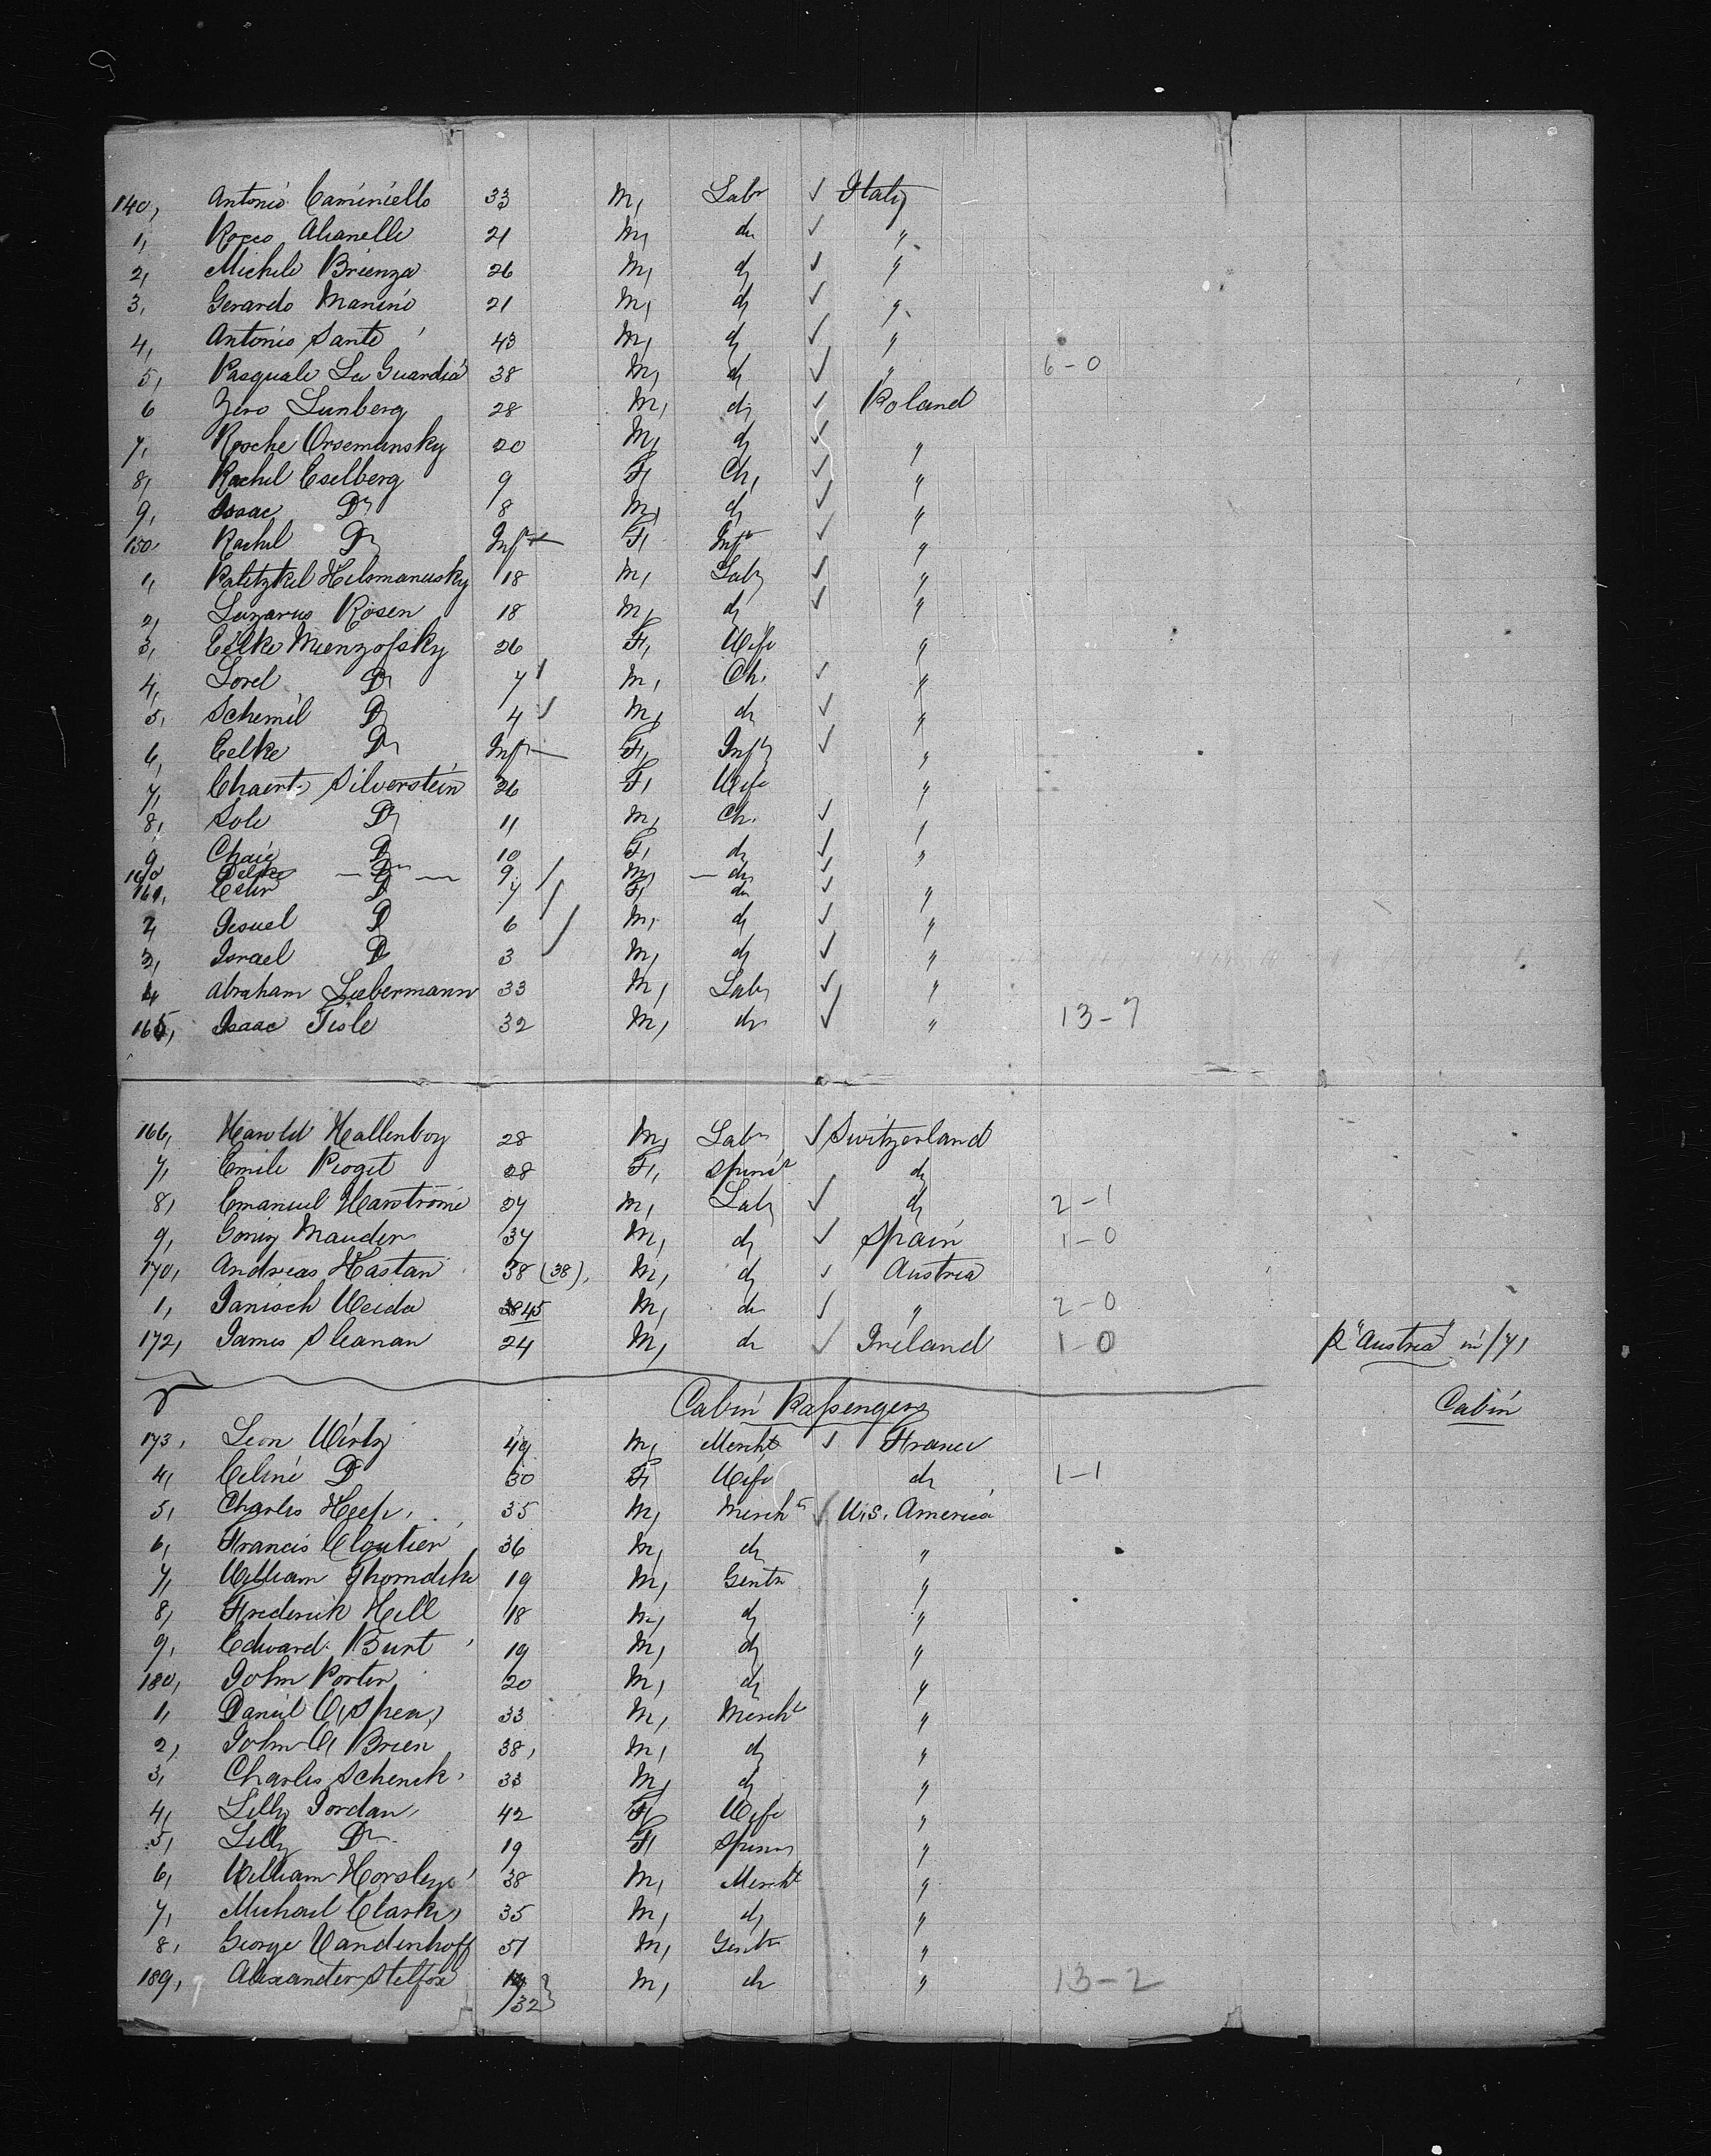 140, Antonio Caminiello 33 M, Labr ✓ Italy
1, Rocco Alianelli 21 M, do ✓ "
2, Michele Brienza 26 M, do ✓ "
3, Gerardo Manino 21 M, do ✓ "
4, Antonio Sante 43 M, do ✓ "
5, Pasquale La Guardia 38 M, do ✓ " 6-0
6 Zero Lunberg 28 M, do ✓ Poland
7, Rosche Orsemunsky 20 M, do ✓ "
8, Rachel Eselberg 9 F, Ch, ✓ "
9, Isaac Do 8 M, do ✓ "
150 Rachel Do Inft F, Inft ✓ "
1, Palitzkel Helsmanusky 18 M, Labr ✓ "
2, Lazarus Rosen 18 M, do ✓ "
3, Eelke Muenzofsky 26 F, Wife "
4, Lorel Do 7 M, Ch. ✓ "
5, Schemil Do 4 M, do ✓ "
6, Eelke Do Inft F, Inft ✓ "
7, Silverstein 26 F, Wife "
8, Sole Do 11 M, Ch. ✓ "
9 Chaie Do 10 F, do ✓ "
160 Do 9 M, do ✓
161, Do 7 F, do ✓ "
2, Jesuel Do 6 M, do ✓ "
3, Israel Do 3 M, do ✓ "
4 Abraham Liebermann 33 M, Labr ✓ "
165, Isaac Fisle 32 M, do ✓ " 13-7
166, Harold Hallenboy 28 M, Labr ✓ Switzerland
7, Emile Pioget 28 F, Spinsr do
8, Emanuel Harstrome 27 M, Labr ✓ do 2-1
9, Mauder 34 M, do ✓ Spain 1-0
170, Andreas Hastan 38 (38), M, do ✓ Austria
1, Janisch Weida 45 M, do ✓ " 2-0
172, James Sleanan 24 M, do ✓ Ireland 1-0 p "Austria" in /71
Cabin Passengers Cabin
173, Leon Wirtz 49 M, Mercht ✓ France
4, Celine Do 30 F, Wife do 1-1
5, Charles Heep, 35 M, Mercht ✓ U.S. America
6, Francis Cloutier 36 M, do "
7, William Thorndike 19 M, Gentn "
8, Frederick Hill 18 M, do "
9, Edward Burt 19 M, do "
180, John Porter 20 M, do "
1, Daniel O'Shea, 33 M, Mercht "
2, John O'Brien 38, M, do "
3, Charles Schenck 33 M, do "
4, Lilly Jordan, 42 F, Wife "
5, Lilly Do 19 F, Spinsr "
6, William Horsleye 38 M, Mercht "
7, Michael Clarke, 35 M, do "
8, George Vandenhoff 51 M, Gentn "
189, Alexander Stelfox 32 M, do " 13-2